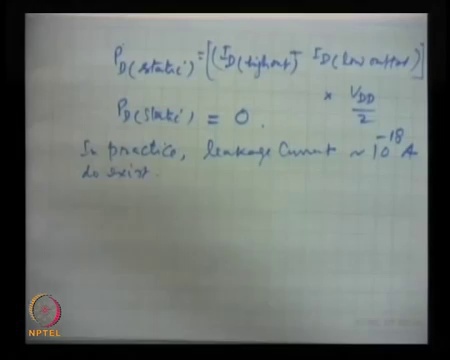 P_D(static) = [(I_D(high out) + I_D(low output)]
× V_DD/2
P_D(static) = 0.
In practice, leakage Current ~ 10^-18 A
do exist.
NPTEL